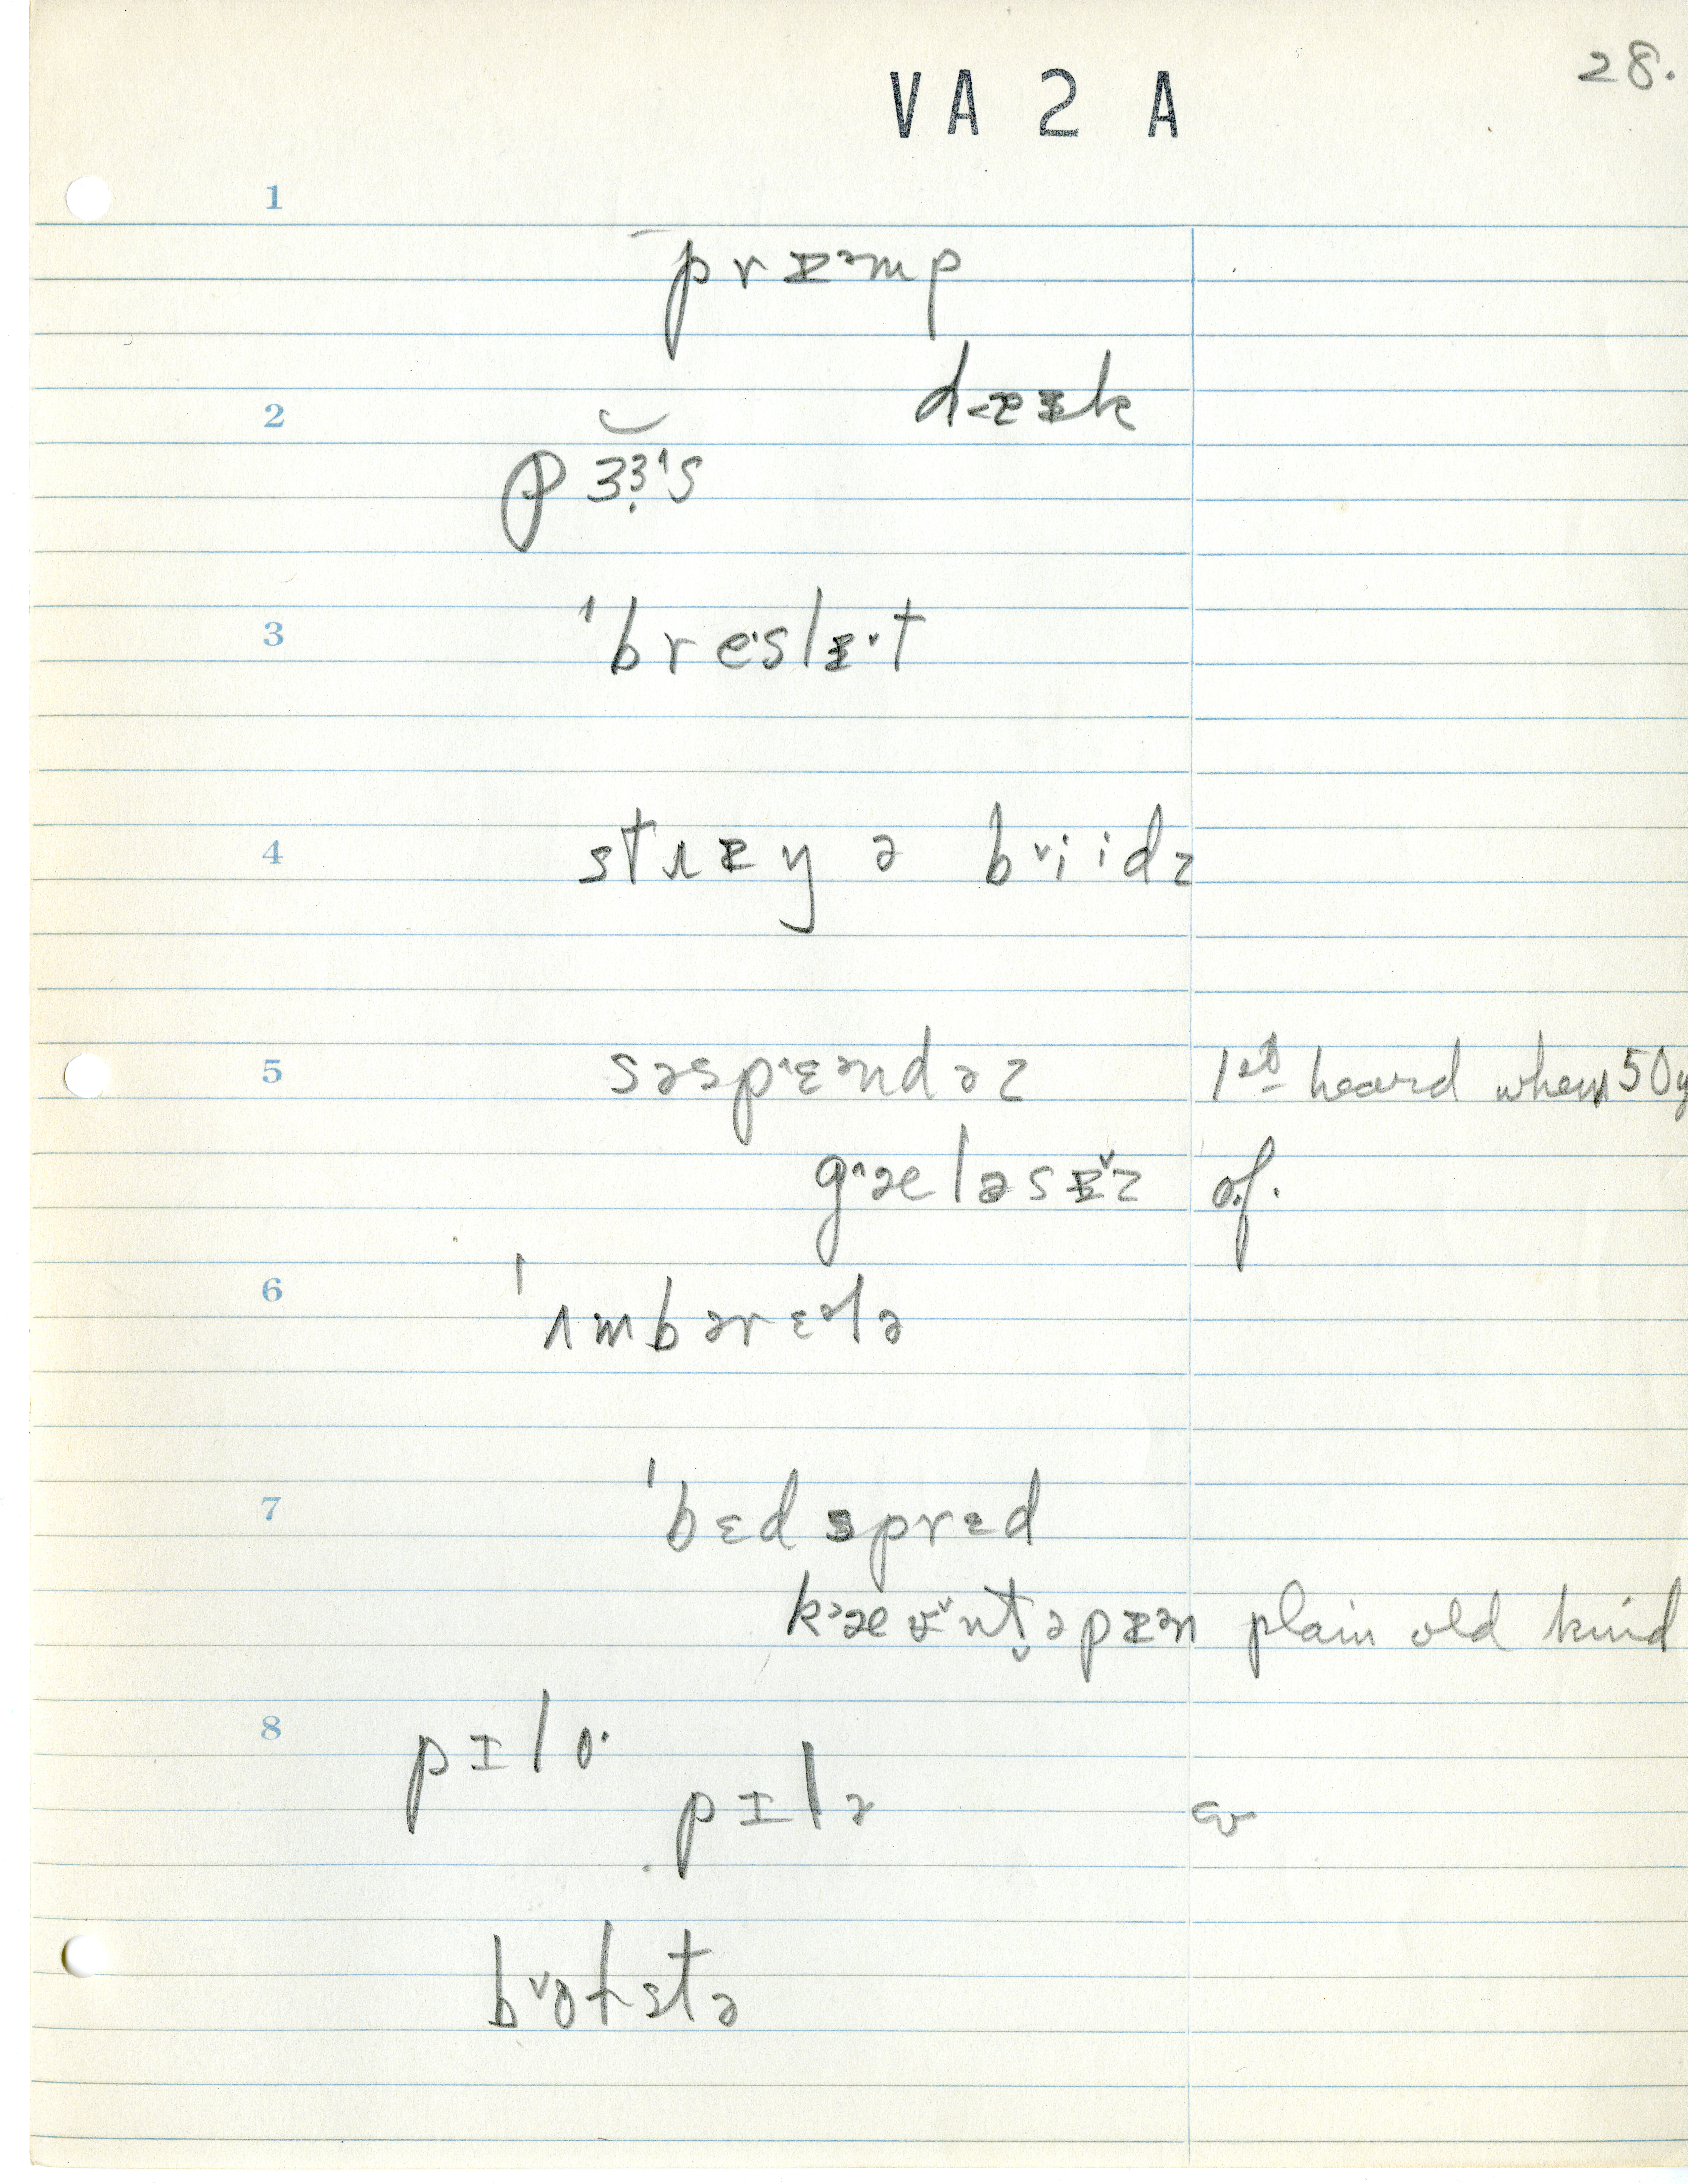 28.
VA 2 A
1
prɪᵊmp
dɪɪk
2
pɜɜ˄s
3
ˈbreslɪ˅t
4
strɪŋ ə b˅iidz
5
səsp˄ɛəndəz 1st heard when 50y
g˄æləsɪ˅z of.
6
ˈʌmbərɛᵊlə
7
ˈbɛdsprɛd
k˃æʊ˅nt̬əpɪən plain old kind
8
pɪlo·
pɪlə
b˅olstə